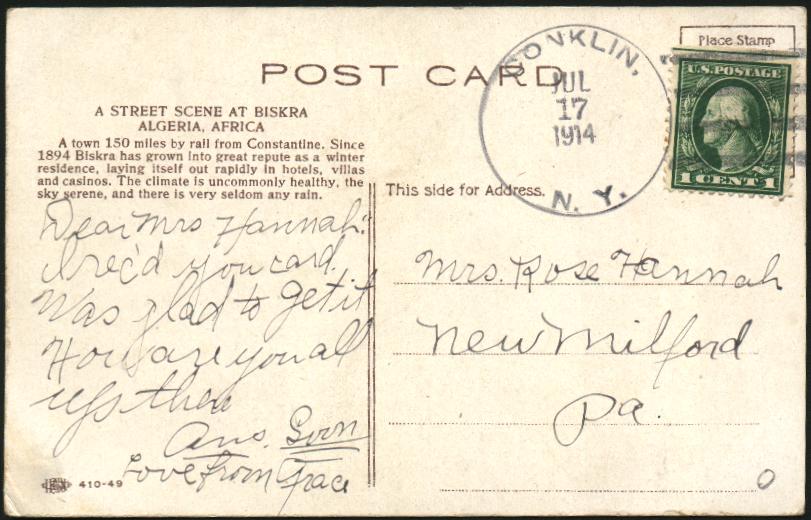 POST CARD
CONKLIN,
JUL
17
1914
N. Y.
Place Stamp
U.S. POSTAGE
1 CENT 1
A STREET SCENE AT BISKRA
ALGERIA, AFRICA
A town 150 miles by rail from Constantine. Since
1894 Biskra has grown into great repute as a winter
residence, laying itself out rapidly in hotels, villas
and casinos. The climate is uncommonly healthy, the
sky serene, and there is very seldom any rain.
This side for Address.
Dear Mrs Hannah:
I rec'd you card.
Was glad to get it
How are you all
up there
Ans. Soon
Love from Grace
Mrs. Rose Hannah
New Milford
Pa.
410-49